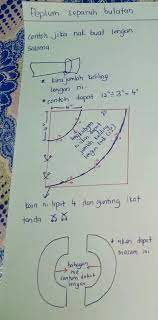 Peplum separuh bulatan
contoh jika nak buat lengan
saloma.
* kira jumlah keliling
lengan ni
* contoh dapat 12" ÷ 3 = 4"
kain ni lipat 4 dan gunting ikut
tanda
* akan dapat
macam ini
bahagian
ni
cantum dekat
lengan